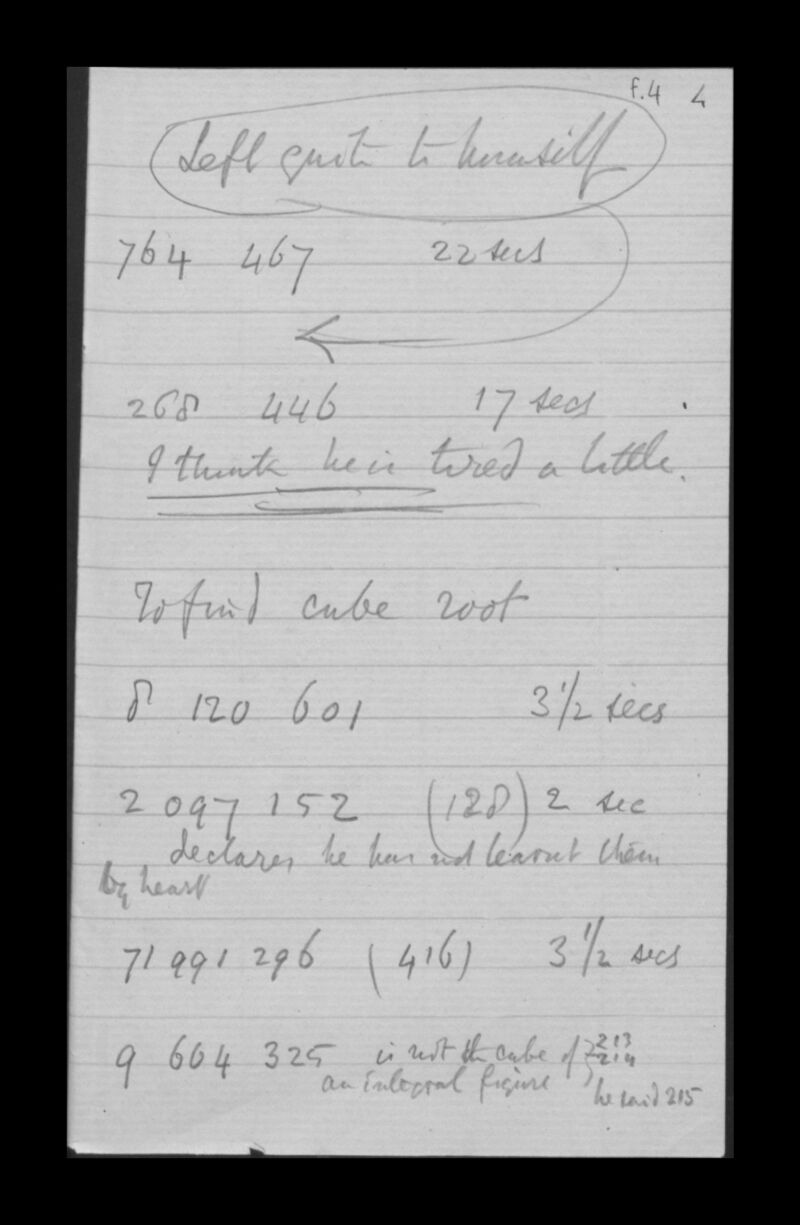 f.4 4
Left quite to himself
764 467 22 secs
268 446 17 secs
I think he is tired a little.
To find cube root
8 120 601 3 1/2 secs
2 097 152 (128) 2 sec
declares he has not learnt them
by heart
71 991 296 (416) 3 1/2 secs
9 664 325 is not the cube of 213
214
an integral figure
he said 215